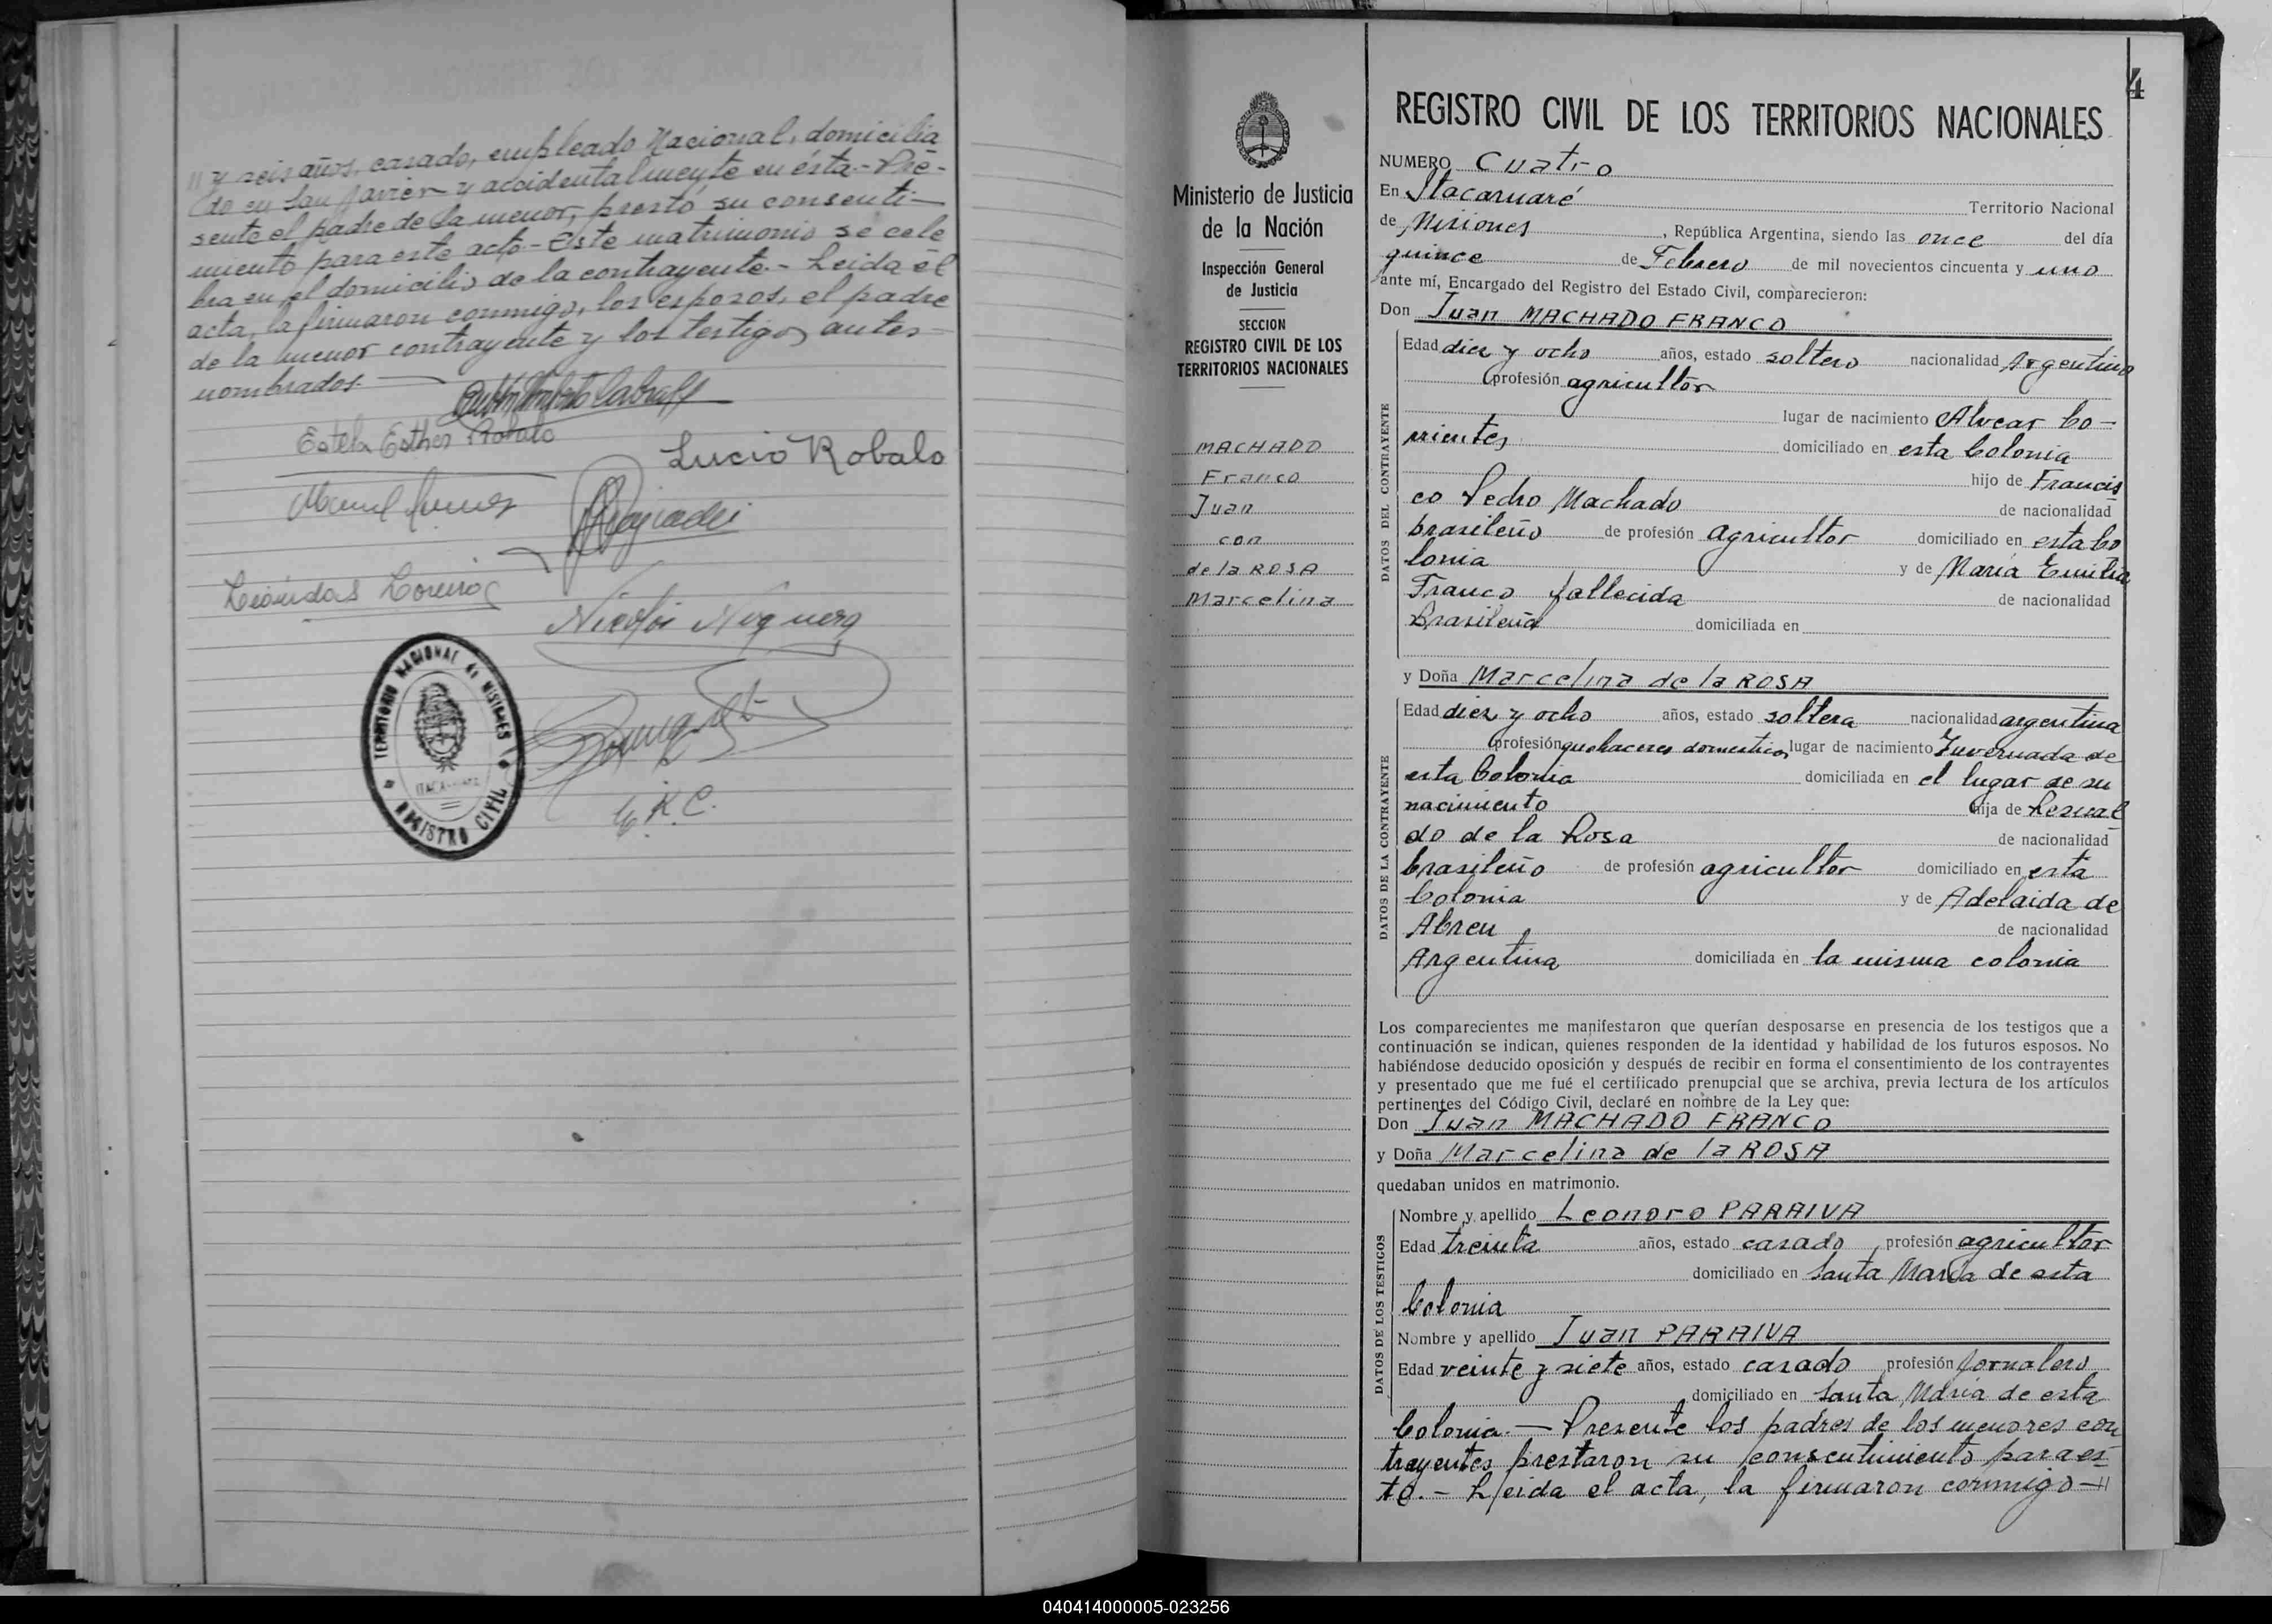 // y seis años, casado, empleado Nacional, domicilia
do en San Javier y accidentalmente en ésta.- Pre-
sente el padre de la menor, prestó su consenti-
miento para este acto - Este matrimonio se cele
bra en el domicilio de la contrayente.- Leida el
acta, la firmaron conmigo, los esposos, el padre
de la menor contrayente y los testigos antes-
nombrados.
Estela Esther Robalo
Lucio Robalo
Leónidas
TERRITORIO NACIONAL de MISIONES
REGISTRO CIVIL
E.R.C.
4
Ministerio de Justicia
de la Nación
Inspección General
de Justicia
SECCION
REGISTRO CIVIL DE LOS
TERRITORIOS NACIONALES
MACHADO
Franco
Juan
con
de la ROSA
Marcelina
REGISTRO CIVIL DE LOS TERRITORIOS NACIONALES
NUMERO Cuatro
En Itacaruaré Territorio Nacional
de Misiones, República Argentina, siendo las once del día
quince de Febrero de mil novecientos cincuenta y uno
ante mí, Encargado del Registro del Estado Civil, comparecieron:
Don Juan MACHADO FRANCO
DATOS DEL CONTRAYENTE
Edad diez y ocho años, estado soltero nacionalidad Argentino
profesión agricultor
lugar de nacimiento Alvear Co-
rrientes domiciliado en esta Colonia
hijo de Francis
co Pedro Machado de nacionalidad
brasileño de profesión agricultor domiciliado en esta Co
lonia y de Maria Emilia
Franco fallecida de nacionalidad
Brasileña domiciliada en
y Doña Marcelina de la ROSA
DATOS DE LA CONTRAYENTE
Edad diez y ocho años, estado soltera nacionalidad argentina
profesión quehaceres domesticos lugar de nacimiento Invernada de
esta Colonia domiciliada en el lugar de su
nacimiento hija de
do de la Rosa de nacionalidad
brasileño de profesión agricultor domiciliado en esta
Colonia y de Adelaida de
Abreu de nacionalidad
Argentina domiciliada en la misma colonia
Los comparecientes me manifestaron que querían desposarse en presencia de los testigos que a
continuación se indican, quienes responden de la identidad y habilidad de los futuros esposos. No
habiéndose deducido oposición y después de recibir en forma el consentimiento de los contrayentes
y presentado que me fué el certificado prenupcial que se archiva, previa lectura de los artículos
pertinentes del Código Civil, declaré en nombre de la Ley que:
Don Juan MACHADO FRANCO
y Doña Marcelina de la ROSA
quedaban unidos en matrimonio.
DATOS DE LOS TESTIGOS
Nombre y apellido Leonoro PARAIVA
Edad treinta años, estado casado profesión agricultor
domiciliado en Santa Maria de esta
Colonia
Nombre y apellido Juan PARAIVA
Edad veinte y siete años, estado casado profesión jornalero
domiciliado en Santa Maria de esta
Colonia.- Presente los padres de los menores con
trayentes prestaron su consentimiento para es-
to.- Leida el acta, la firmaron conmigo-//
040414000005-023256